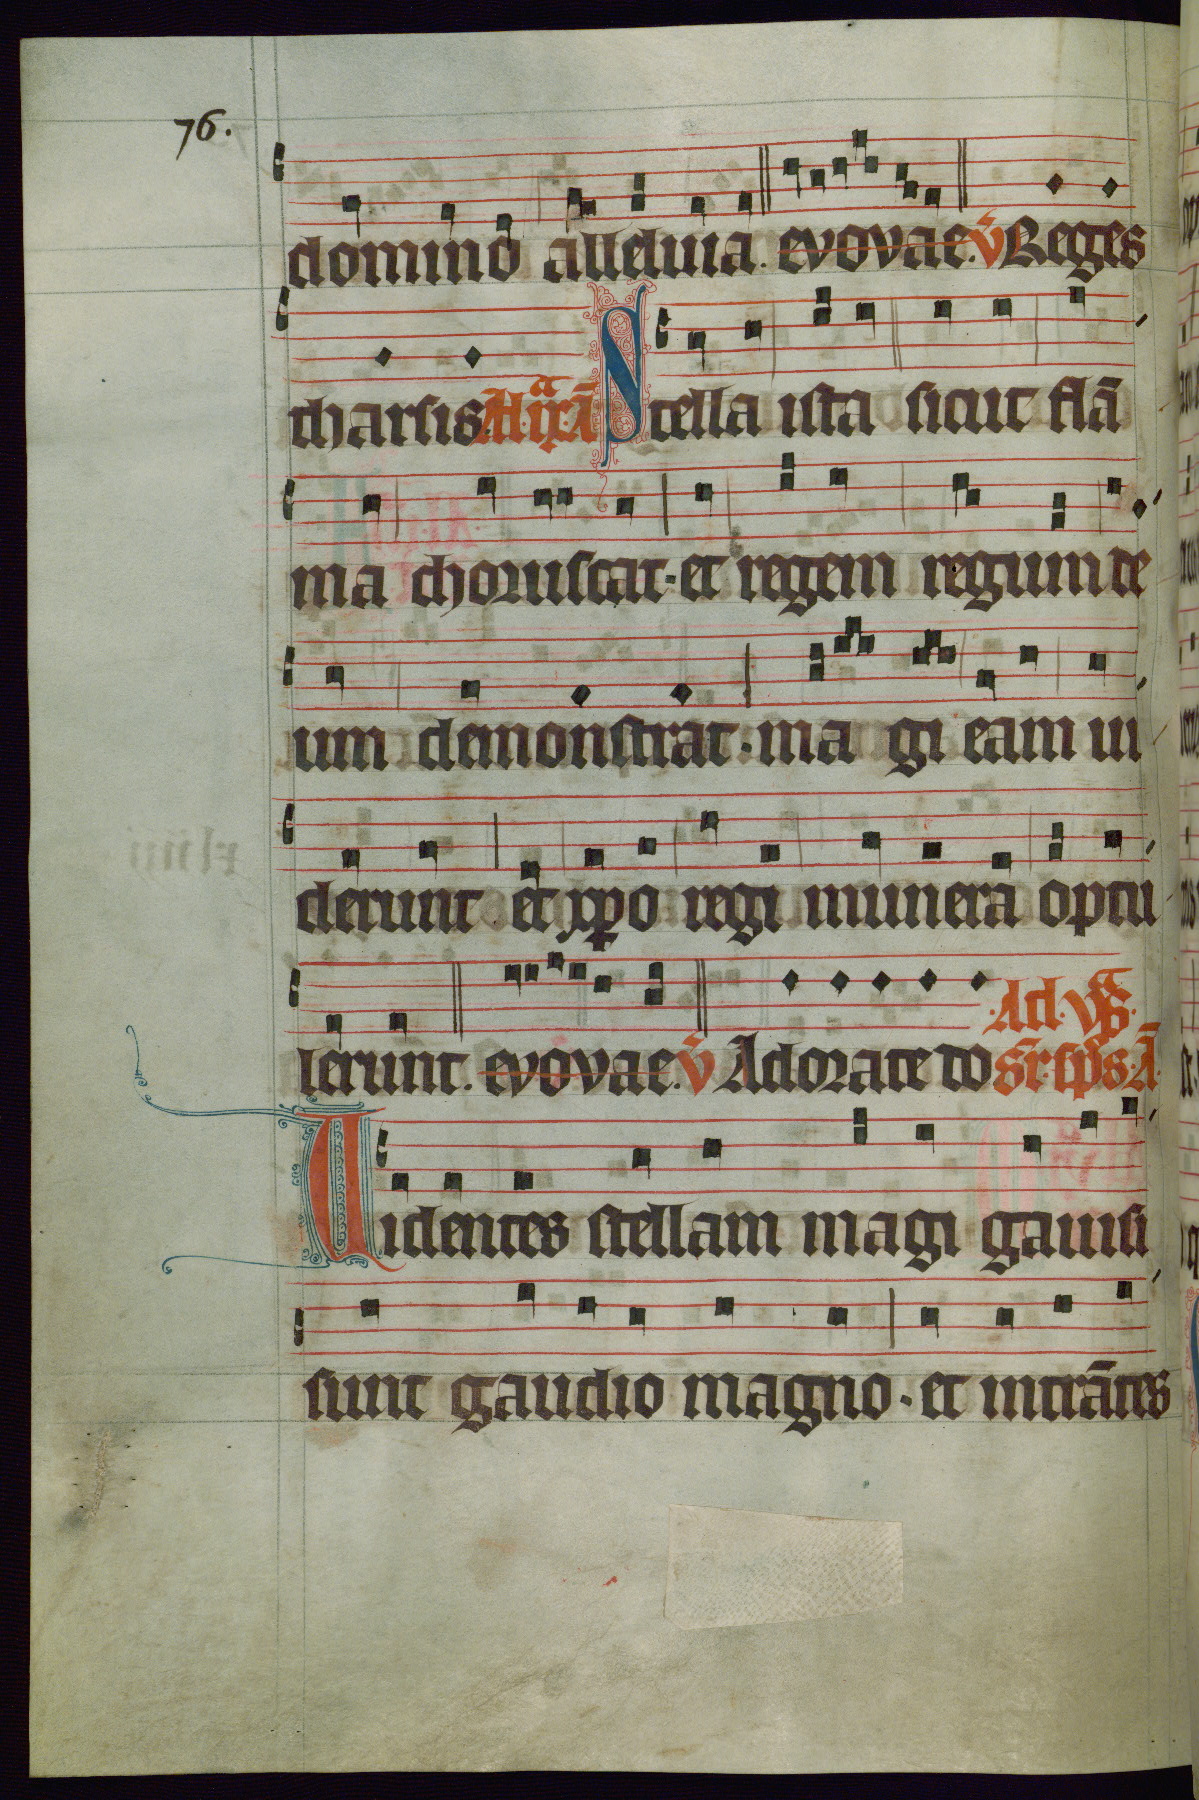 76.
domino alleluia. evovae. v̄ Reges
tharsis Ad .ixͣ. ā Stella ista sicut flā
ma choruscat · et regem regum de
um demonstrat · ma gi eam ui
derunt et xp̄o regi munera optu
lerunt. evovae. v̄ Adorate do
.Ad. vp̄ͣs.
Sr. sp̄s. Ā.
Uidentes stellam magi gauisi
sunt gaudio magno · et intrātes